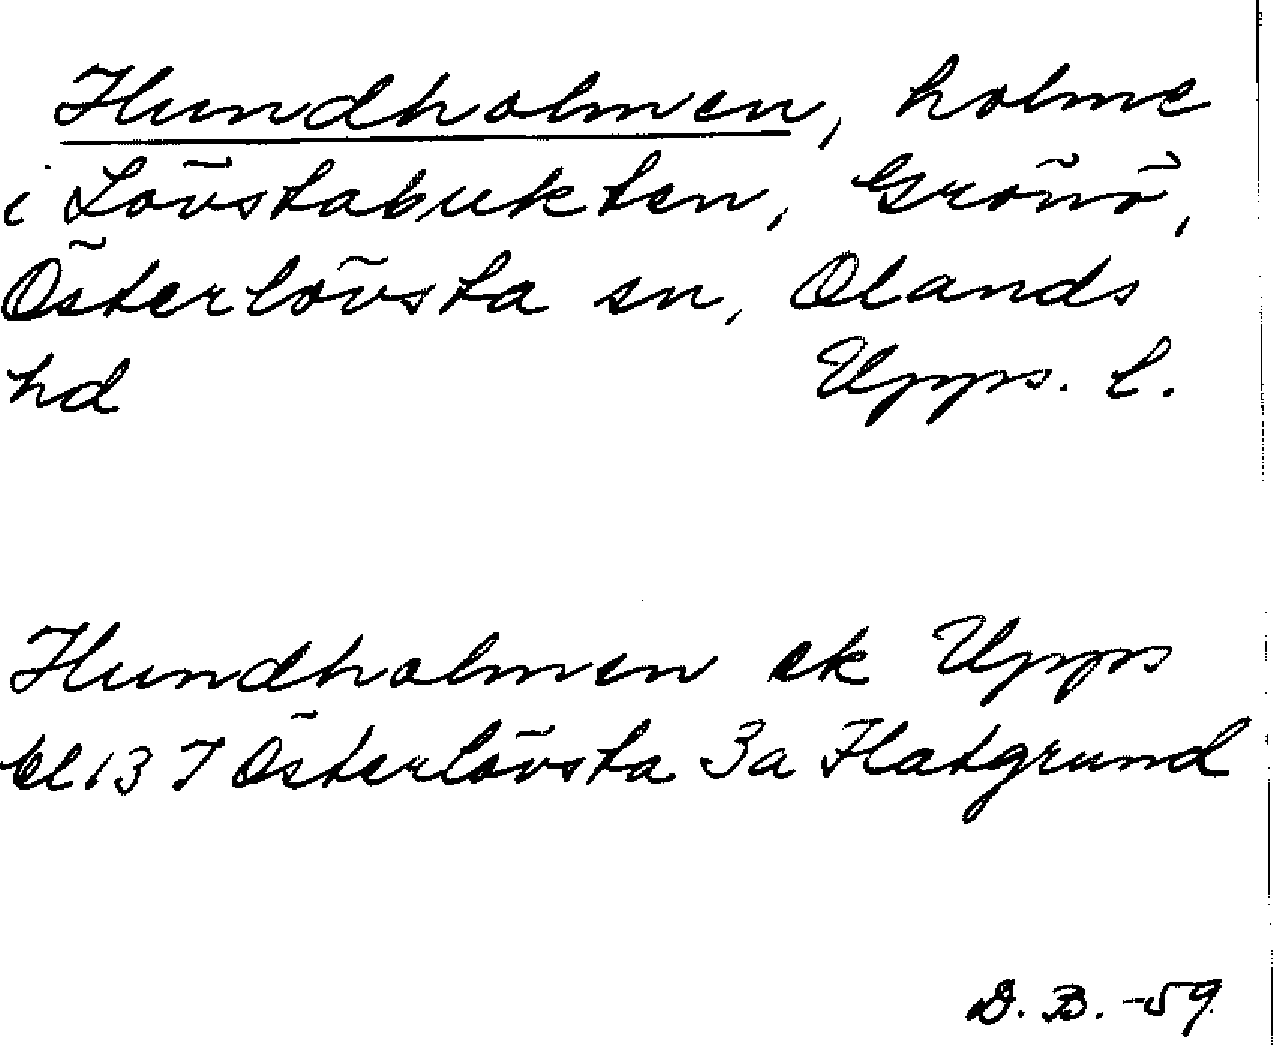 Hundholmen, holme
i Lövstabukten, Grönö,
Österlövsta sn, Olands
hd Upps. l.
Hundholmen ek Upps
bl 13 7 Österlövsta 3a Flatgrund
D. B. -59